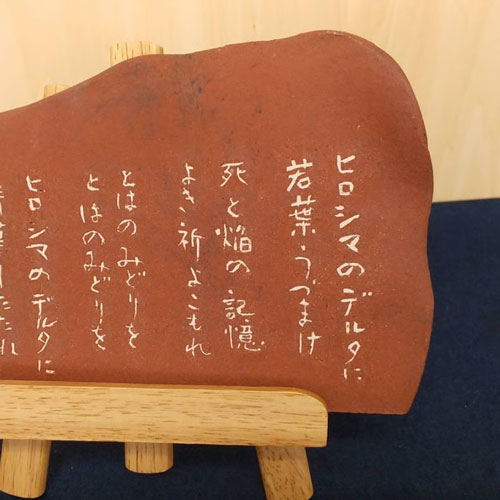 ヒロシマのデルタに
若葉うづまけ
死と焔の記憶
よき祈よこもれ
とはのみどりを
とはのみどりを
ヒロシマのデルタに
青葉したたれ